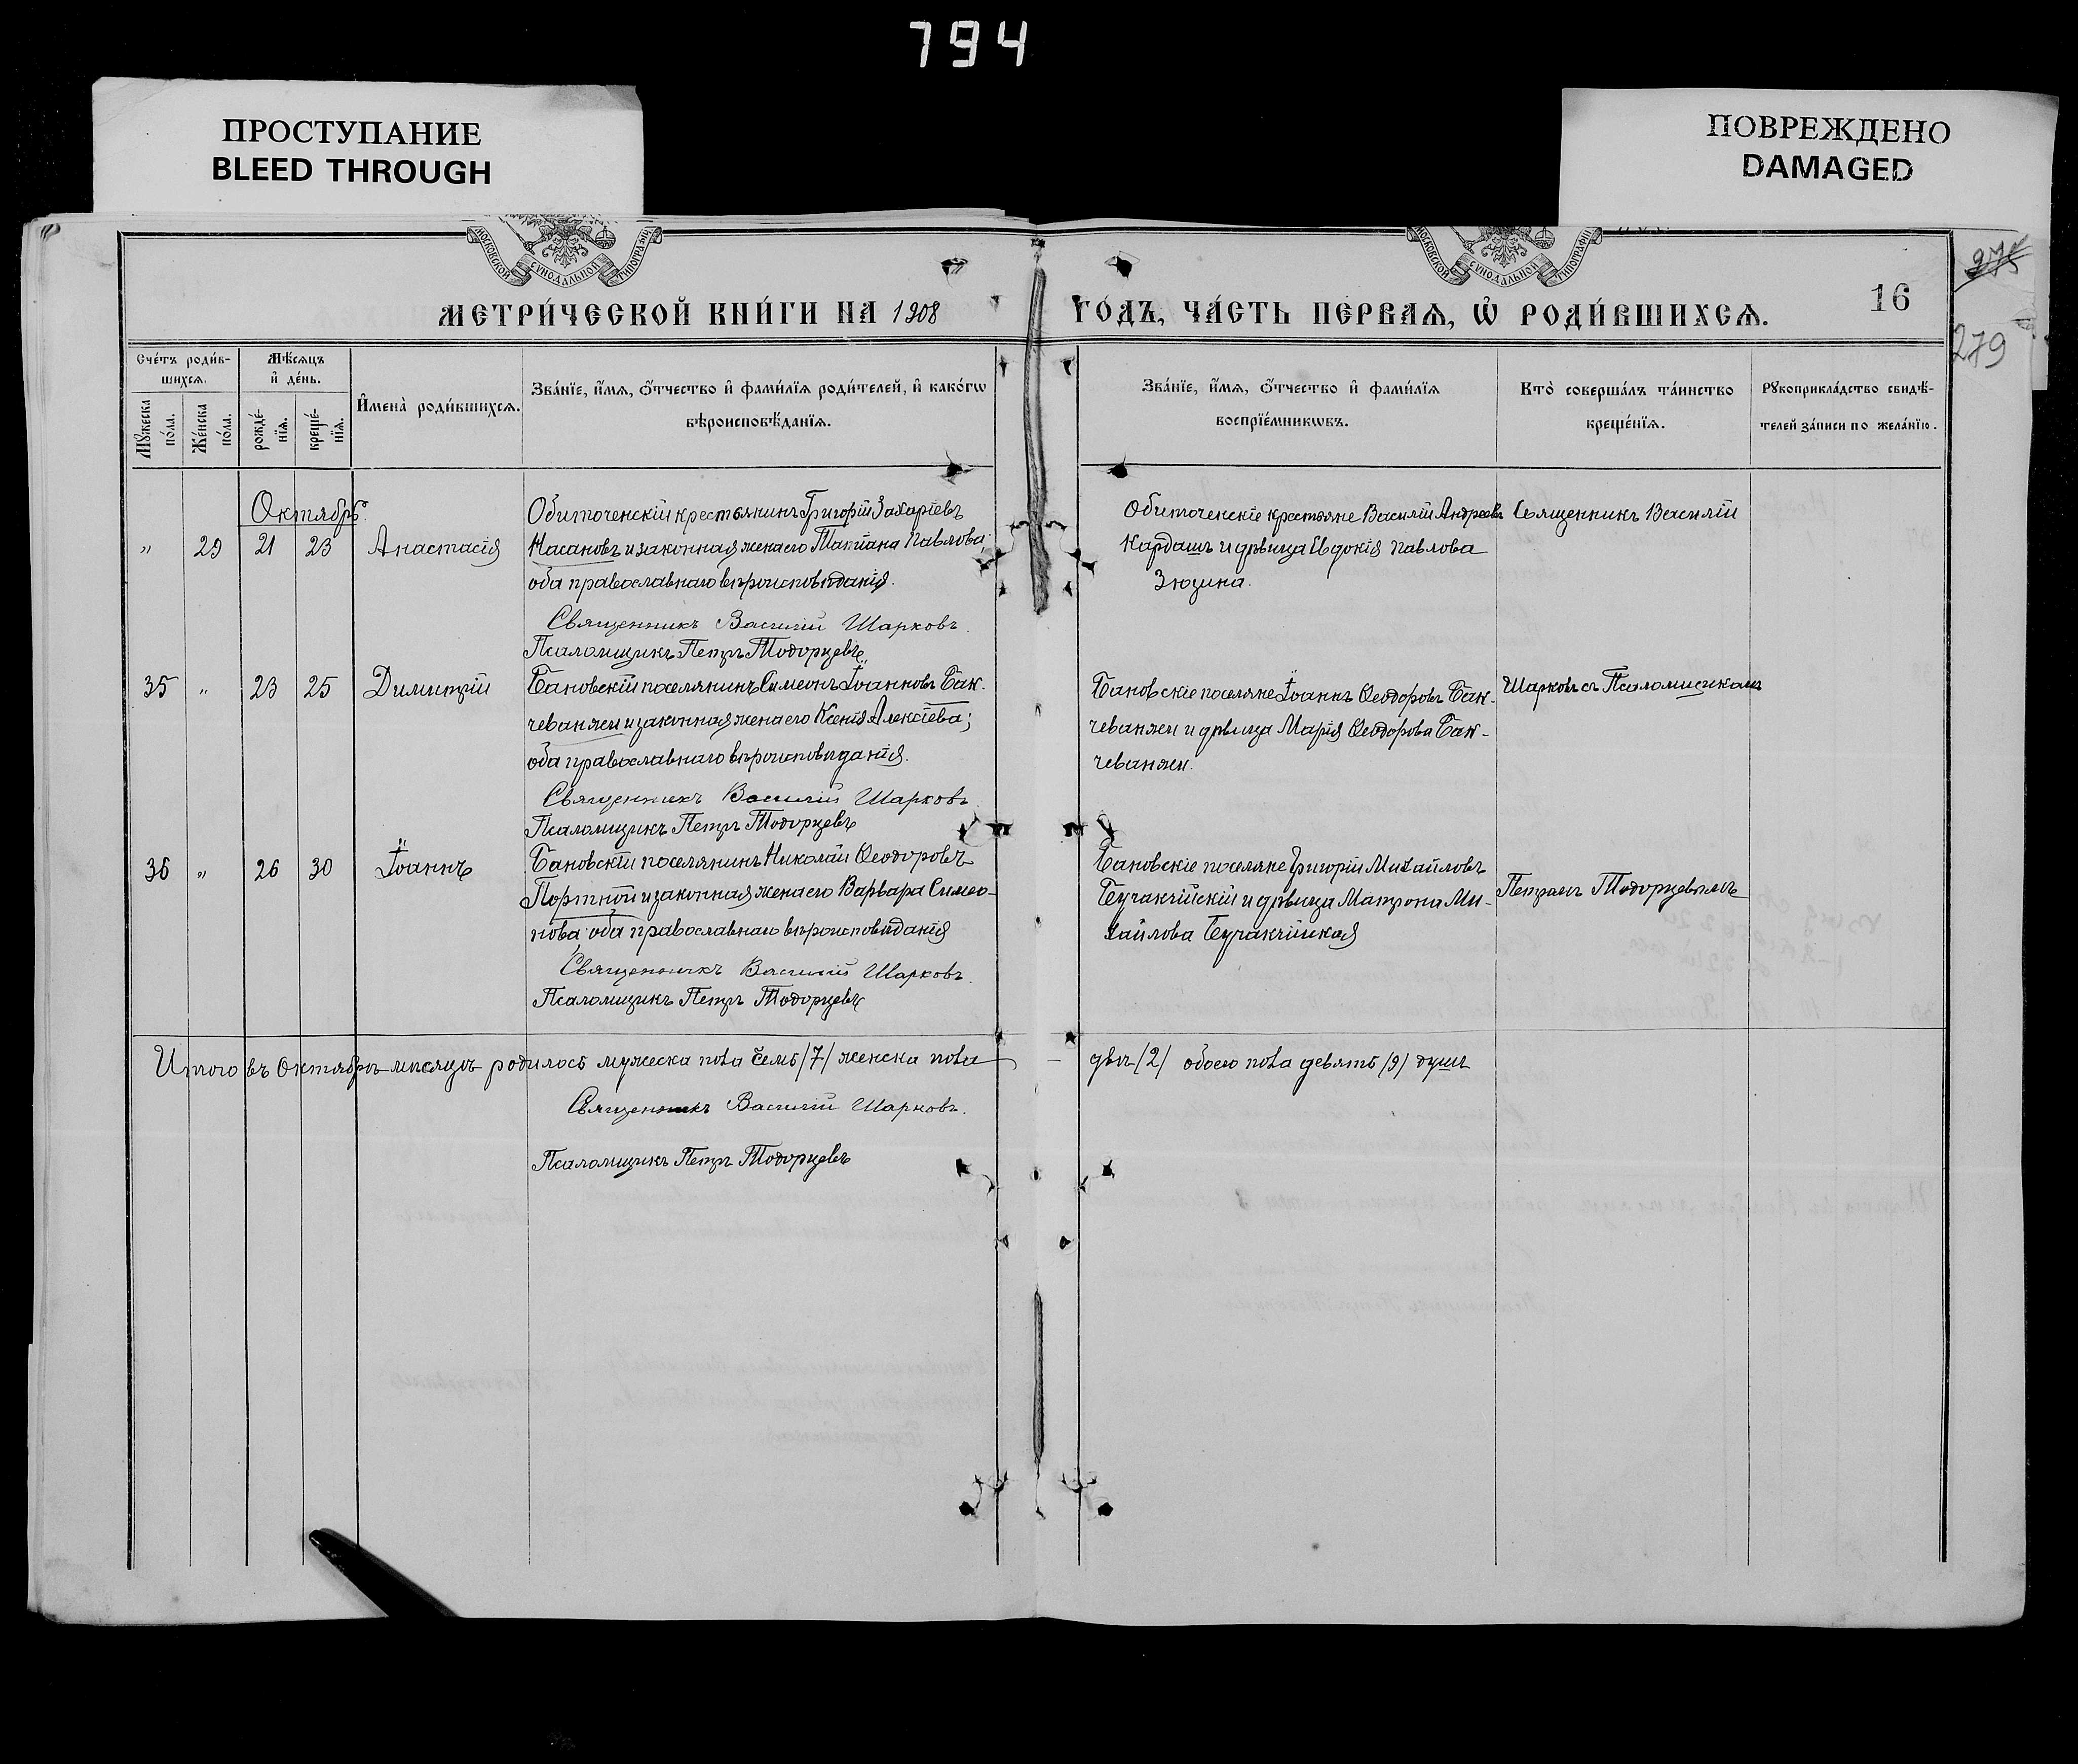 794
ПРОСТУПАНИЕ
BLEED THROUGH
ПОВРЕЖДЕНО
DAMAGED
МОСКОВСКОЙ СѴНОДАЛЬНОЙ ТИПОГРАФІИ
МОСКОВСКОЙ СѴНОДАЛЬНОЙ ТИПОГРАФІИ
275
279
МЕТРИ́ЧЕСКОЙ КНИ́ГИ НА 1908
ГО́ДЪ, ЧА́СТЬ ПЕ́РВАѦ, Ѡ РОДИ́ВШИХСѦ. 16
Сче́тъ роди́в-
шихсѧ.
Мꙋ́жеска по́ла.
Же́нска по́ла.
Мѣ́сѧцъ
и҆ де́нь.
рожде́-
нїѧ.
креще́-
нїѧ.
И҆мена̀ роди́вшихсѧ.
Зва́нїе, и҆́мѧ, ѻ҆́тчество и҆ фами́лїѧ роди́телей, и҆ како́гѡ
вѣроисповѣ́данїѧ.
Зва́нїе, и҆́мѧ, ѻ҆́тчество и҆ фами́лїѧ
воспрїе́мникѡвъ.
Кто̀ соверша́лъ та́инство
креще́нїѧ.
Рꙋкоприкла́дство свидѣ́-
телей за́писи по жела́нїю.
Октябрь.
„ 29 21 23 Анастасія
Обиточенскій крестьянинъ Григорій Захаріевъ
Насановъ и законная жена его Татіана Павлова;
оба православнаго вѣроисповѣданія.
Священникъ Василій Шарковъ.
Псаломщикъ Петръ Тодорцевъ
Обиточенскіе крестьяне Василій Андреевъ
Кардашъ и дѣвица Евдокія Павлова
Зюзина.
Священникъ Василій
35 „ 23 25 Димитрій
Бановскій поселянинъ Симеонъ Іоанновъ Бак-
чеванжи и законная жена его Ксенія Алексіева;
оба православнаго вѣроисповѣданія.
Священникъ Василій Шарковъ
Псаломщикъ Петръ Тодорцевъ
Бановскіе поселяне Іоаннъ Ѳеодоровъ Бак-
чеванжи и дѣвица Марія Ѳеодорова Бак-
чеванжи.
Шарковъ съ Псаломщикомъ
36 „ 26 30 Іоаннъ
Бановскій поселянинъ Николай Ѳеодоровъ
Портной и законная жена его Варвара Симео-
нова; оба православнаго вѣроисповѣданія
Священникъ Василій Шарковъ.
Псаломщикъ Петръ Тодорцевъ
Бановскіе поселяне Григорій Михайловъ
Бучакчійскій и дѣвица Матрона Ми-
хайлова Бучакчійская
Петромъ Тодорцевымъ
Итого въ Октябрѣ мѣсяцѣ родилось мужеска пола семь /7/ женска пола
двѣ /2/ обоего пола девять /9/ душъ
Священникъ Василій Шарковъ.
Псаломщикъ Петръ Тодорцевъ